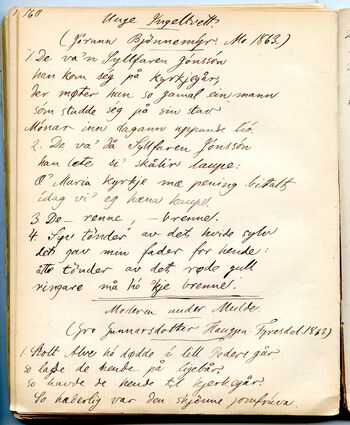 160
Unge Ingellveitt.
(Jórunn Bjönnemyr. Mo 1863.)
1. De va'n Syllfaren Jónssón
han kom seg på kyrkjegår,
der möter han so gamal ein mann
sóm studde seg på sin stav
Mónar men dagann uppunde lió.
2. De va' då Syllfaren Jónssón
han lete si' skålir laupe:
O' Maria kyrkje mæ pening bitalt
idag vi' eg hæna kaupe.
3 De – renne, – brenne.
4. Syv tönder av det hvide sylv
det gav min fader for hende:
otte tönder av det röde gull
ringare må hó 'kje brenne.
Moderen under Mulde.
(Gro Gunnarsdotter Haugen Fyresdal 1863)
1 Stolt Alver hó dødde i lill Peders går
so lagde de hende på ligebår,
so havde de hende til kjerkegår.
So haberlig var den skjönne jomfruva.